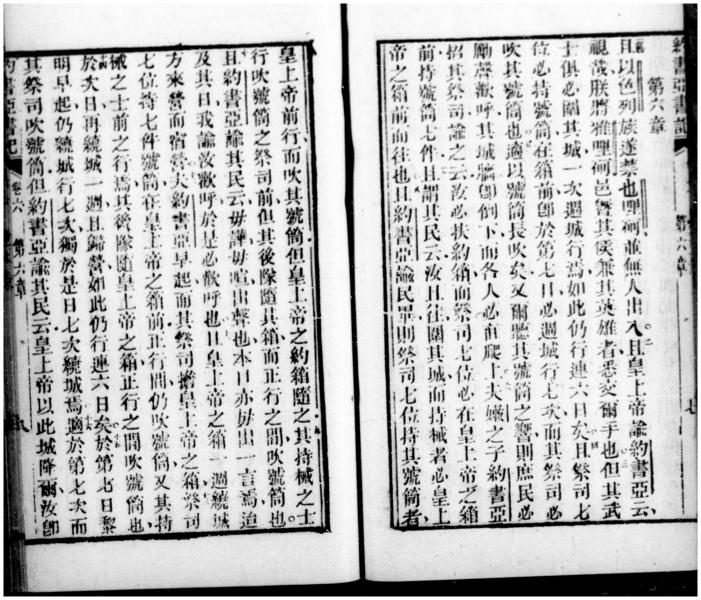 約書亞書記 第六章 七
第六章
且以色列族遂禁也哩𠵽並無人出入且皇上帝諭約書亞云
視哉朕將雅哩𠵽邑暨其侯兼其英雄者悉交爾手也但其武
士俱必圍其城一次週城行焉如此仍行連六日矣且祭司七
位必持號筒在箱前卽於第七日必週城行七次而其祭司必
吹其號筒也適以號筒長吹矣又爾聽其號筒之響則庶民必
勵聲歡呼其城牆卽倒下而各人必直爬上夫嫩之子約書亞
招其祭司諭之云汝必扶約箱而祭司七位必在皇上帝之箱
前持號筒七件且謂其民云汝且往圍其城而持械者必皇上
帝之箱前而往也且約書亞諭民畢則祭司七位持其號筒者
皇上帝前行而吹其號筒但皇上帝之約箱隨之其持械之士
行吹號筒之祭司前但其後隊隨其箱而正行之間吹號筒也
且約書亞諭其民云毋譁毋喧出聲也本日亦毋出一言焉迨
及其日我諭汝歡呼於是必歡呼也且皇上帝之箱一週繞城
方來營而宿營夫約書亞早起而其祭司擔皇上帝之箱祭司
七位持七件號筒在皇上帝之箱前正行間仍吹號筒又其持
械之士前之行焉其後隊隨皇上帝之箱正行之間吹號筒也
於次日再繞城一週且歸營如此仍行連六日矣於第七日黎
明早起仍繞城行七次獨於是日七次繞城焉適於第七次而
其祭司吹號筒但約書亞諭其民云皇上帝以此城降爾汝卽
約書亞書記 卷六 第六章